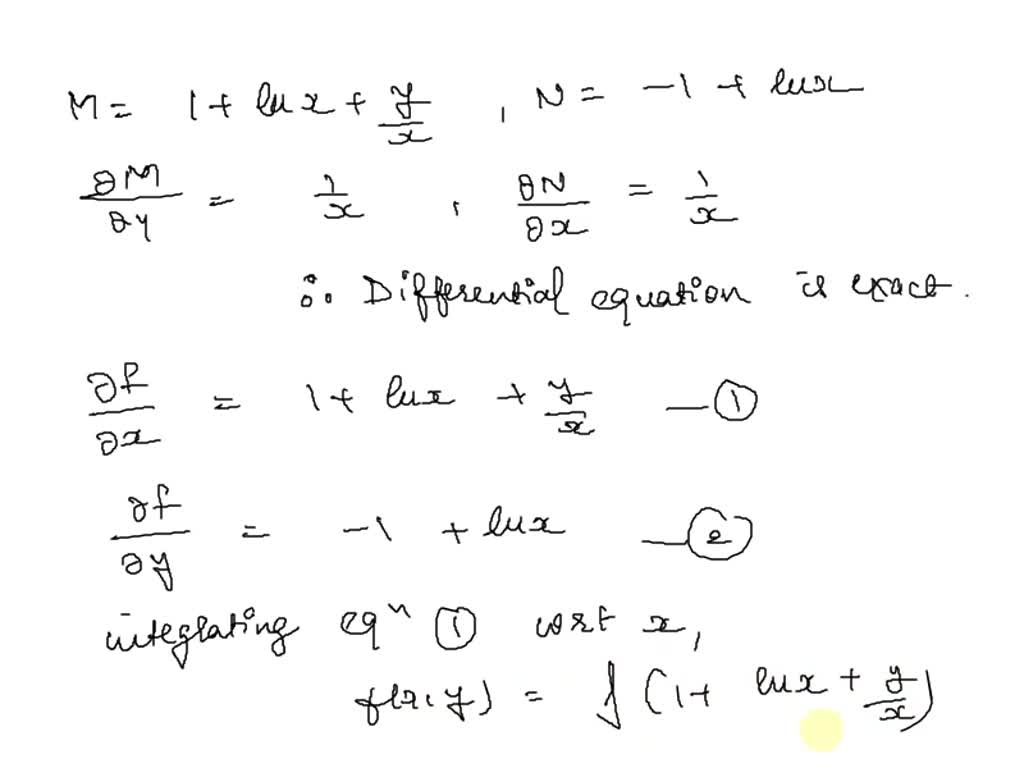 M = 1 + ln x + y/x , N = -1 + ln x
∂M/∂y = 1/x , ∂N/∂x = 1/x
∴ Differential equation is exact.
∂f/∂x = 1 + ln x + y/x —①
∂f/∂y = -1 + ln x —②
integrating eqⁿ ① wrt x,
f(x,y) = ∫(1 + ln x + y/x)